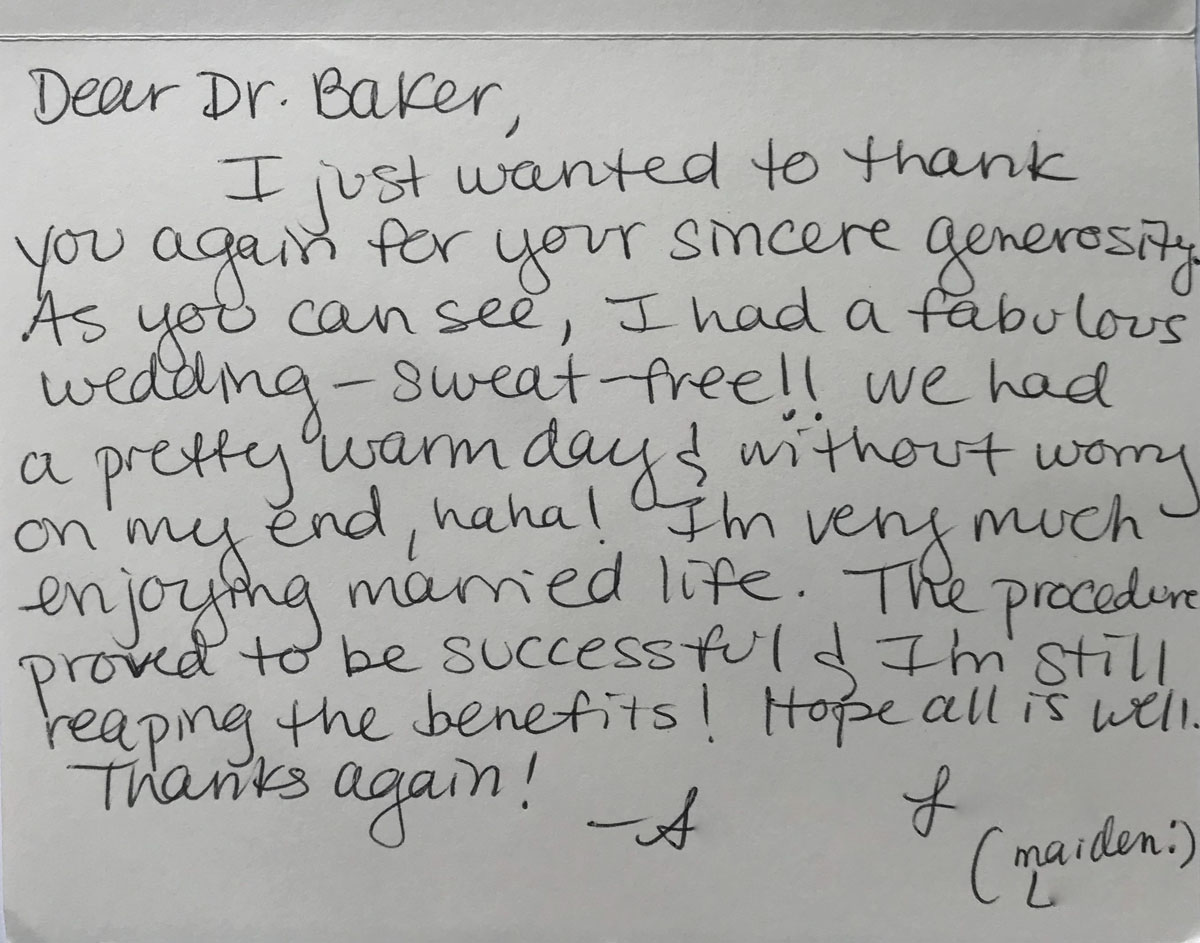 Dear Dr. Baker,
I just wanted to thank
you again for your sincere generosity.
As you can see, I had a fabulous
wedding - sweat-free!! we had
a pretty warm day & without worry
on my end, haha! I'm very much
enjoying married life. The procedure
proved to be successful & I'm still
reaping the benefits! Hope all is well.
Thanks again!
-A
(maiden:)
L